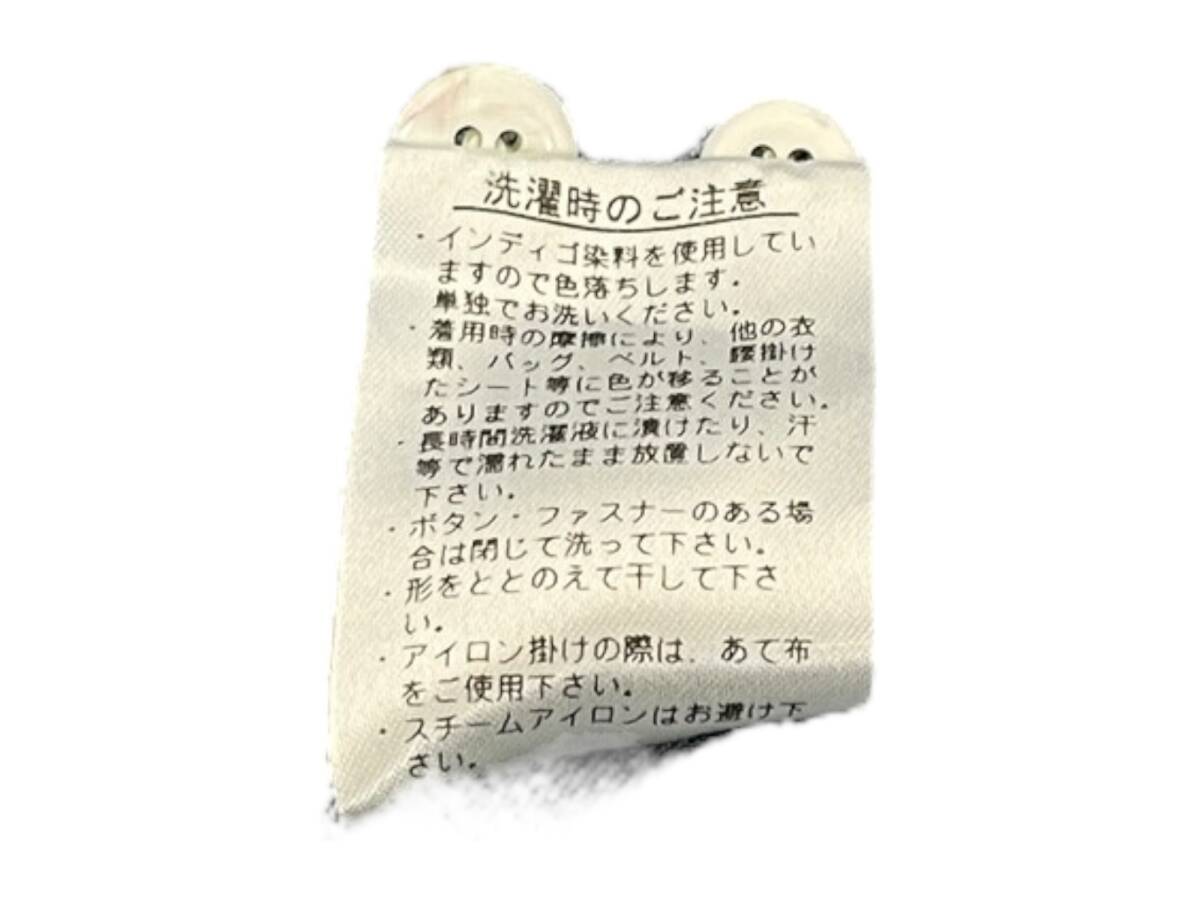 洗濯時のご注意
・インディゴ染料を使用してい
ますので色落ちします.
単独でお洗いください.
・着用時の摩擦により、他の衣
類、バッグ、ベルト、腰掛け
たシート等に色が移ることが
ありますのでご注意ください.
・長時間洗濯液に漬けたり、汗
等で濡れたまま放置しないで
下さい.
・ボタン・ファスナーのある場
合は閉じて洗って下さい.
・形をととのえて干して下さ
い.
・アイロン掛けの際は、あて布
をご使用下さい.
・スチームアイロンはお避け下
さい.